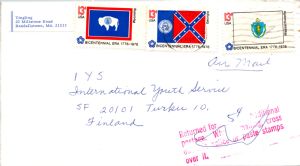 Yingling
20 Millstone Road
Randallstown, Md. 21133
13 USA
BICENTENNIAL ERA 1776-1976
13 USA
BICENTENNIAL ERA 1776-1976
13 USA
BICENTENNIAL ERA 1776-1976
Air Mail
I Y S
International Youth Service
SF 20101 Turku 10.
Finland
Returned for 5¢ additional
postage. cross
out paste stamps
over it.